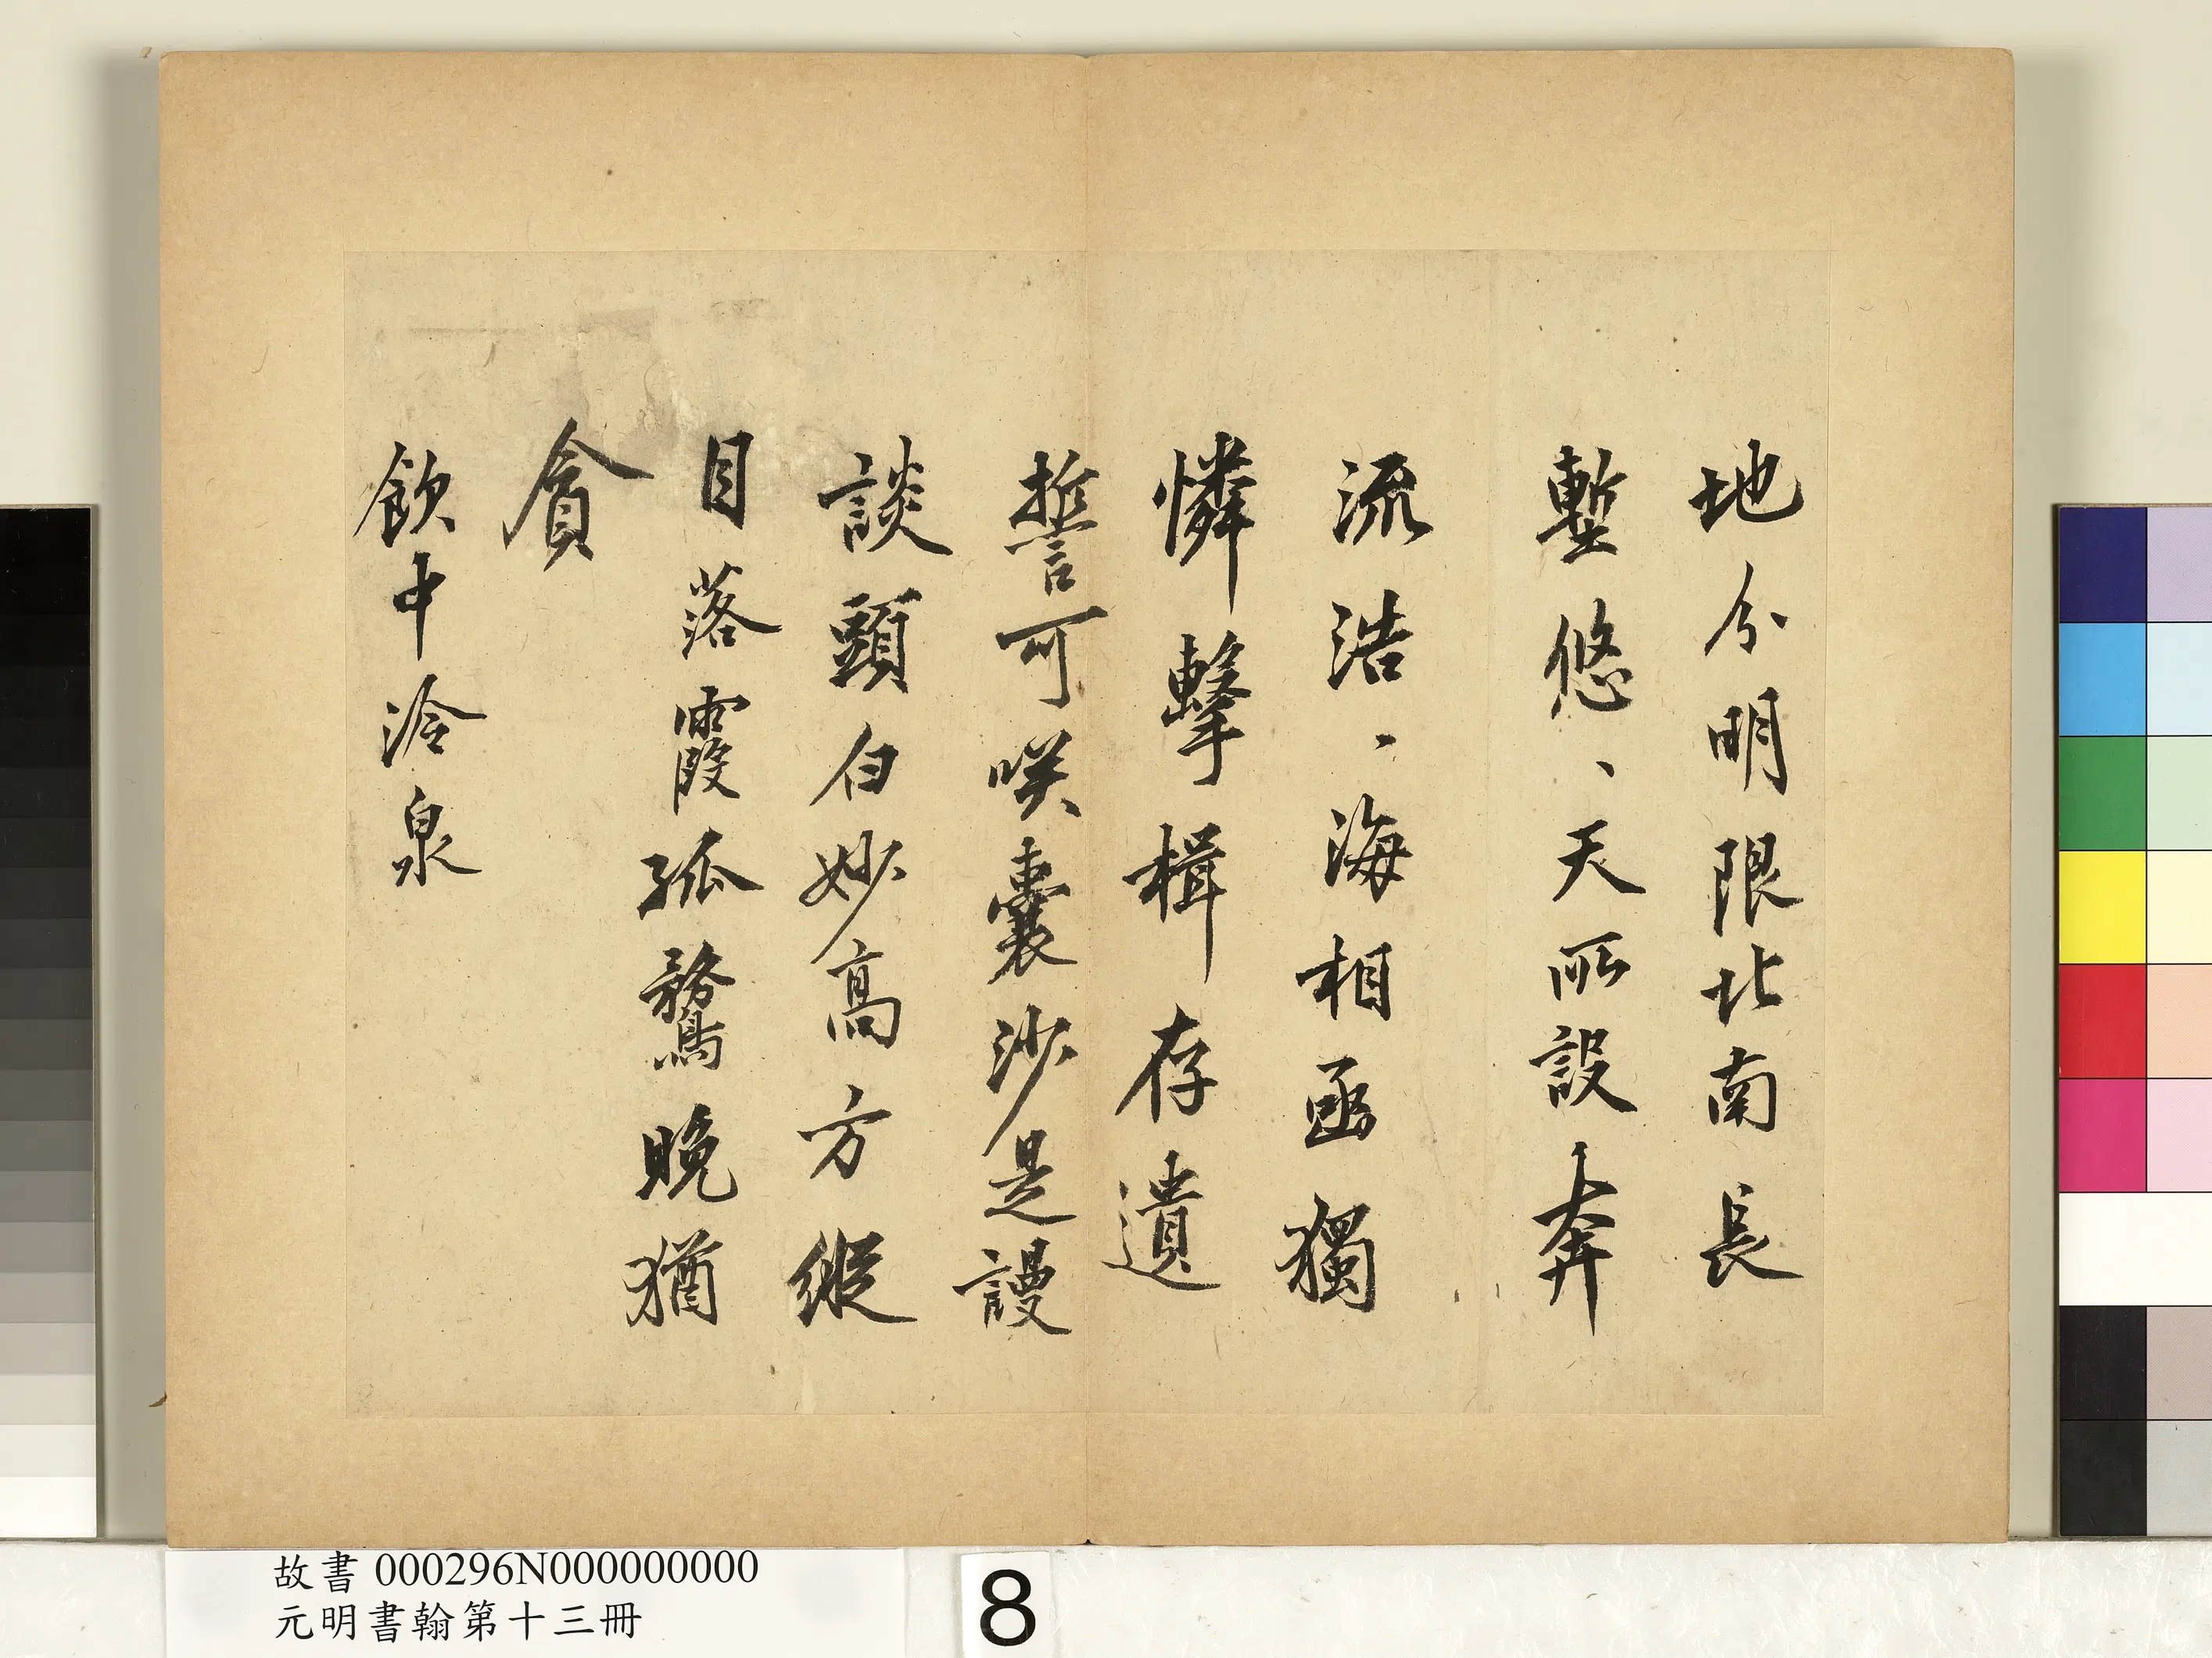 地分明限北南長
塹悠、天所設奔
流浩、海相函獨
憐擊楫存遺
誓可咲囊沙是謾
談頭白妙高方縱
目落霞孤鶩晚猶
貪
飲中泠泉
故書 000296N000000000
元明書翰第十三冊
8